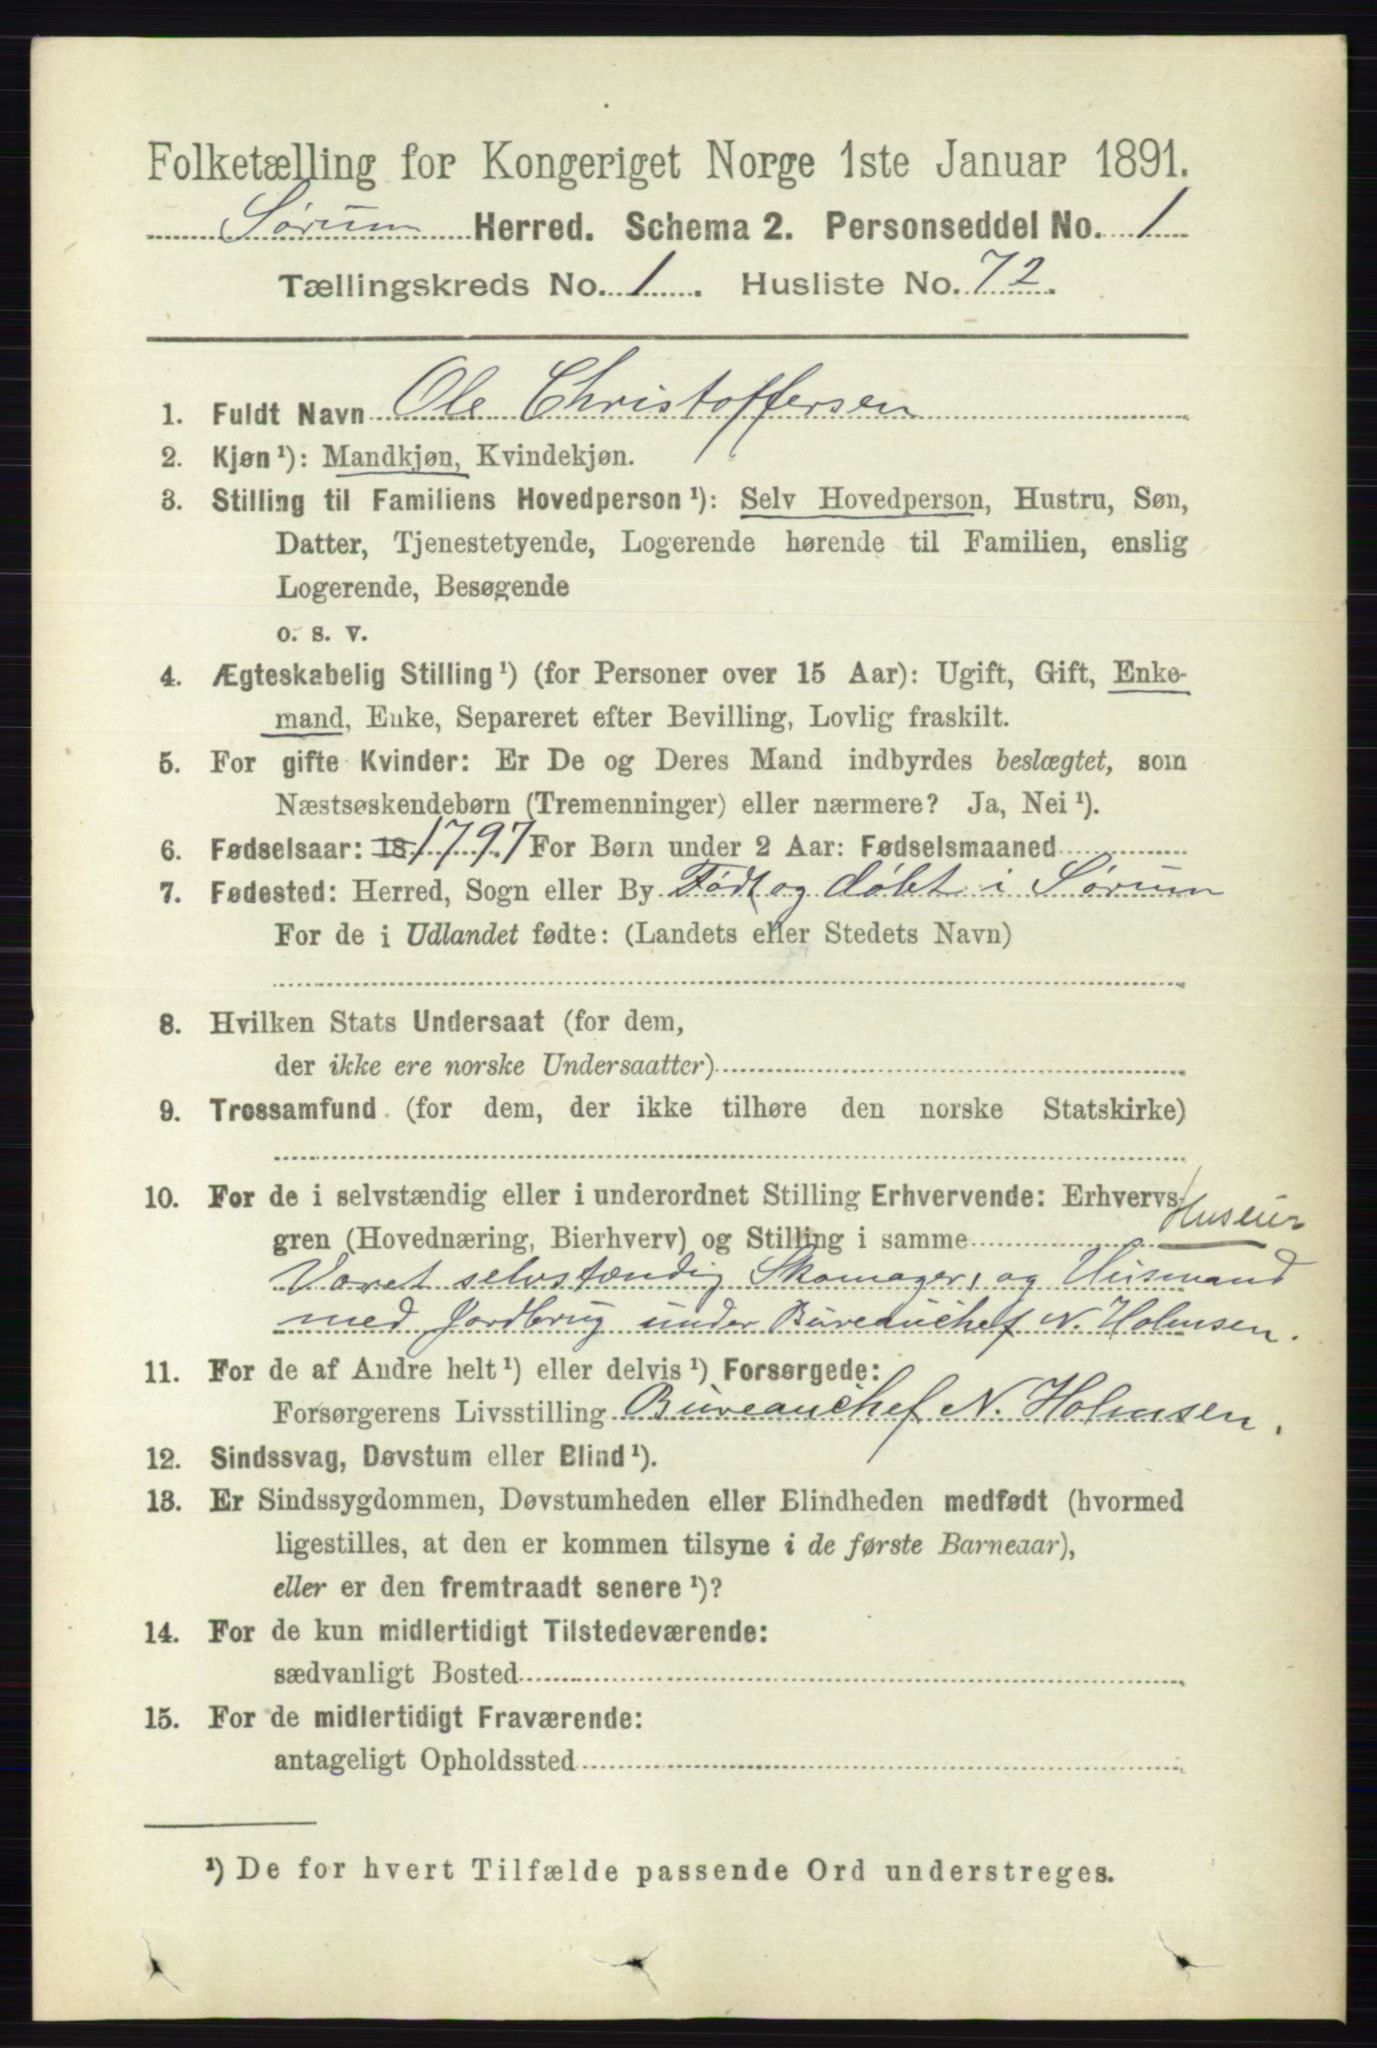 Folketælling for Kongeriget Norge 1ste Januar 1891.
Sørum Herred. Schema 2. Personseddel No. 1
Tællingskreds No. 1. Husliste No. 72.
1. Fuldt Navn Ole Christoffersen
2. Kjøn¹): Mandkjøn, Kvindekjøn.
3. Stilling til Familiens Hovedperson¹): Selv Hovedperson, Hustru, Søn,
Datter, Tjenestetyende, Logerende hørende til Familien, enslig
Logerende, Besøgende
o. s. v.
4. Ægteskabelig Stilling¹) (for Personer over 15 Aar): Ugift, Gift, Enke-
mand, Enke, Separeret efter Bevilling, Lovlig fraskilt.
5. For gifte Kvinder: Er De og Deres Mand indbyrdes beslægtet, som
Næstsøskendebørn (Tremenninger) eller nærmere? Ja, Nei¹).
6. Fødselsaar: 18 1797 For Børn under 2 Aar: Fødselsmaaned
7. Fødested: Herred, Sogn eller By Født og døbt i Sørum
For de i Udlandet fødte: (Landets eller Stedets Navn)
8. Hvilken Stats Undersaat (for dem,
der ikke ere norske Undersaatter)
9. Trossamfund (for dem, der ikke tilhøre den norske Statskirke)
10. For de i selvstændig eller i underordnet Stilling Erhvervende: Erhvervs-
gren (Hovednæring, Bierhverv) og Stilling i samme Huseier
Været selvstændig Skomager, og Husmand
med Jordbrug under Bureauchef N. Holmsen.
11. For de af Andre helt¹) eller delvis¹) Forsørgede:
Forsørgerens Livsstilling Bureauchef N. Holmsen.
12. Sindssvag, Døvstum eller Blind¹).
13. Er Sindssygdommen, Døvstumheden eller Blindheden medfødt (hvormed
ligestilles, at den er kommen tilsyne i de første Barneaar),
eller er den fremtraadt senere¹)?
14. For de kun midlertidigt Tilstedeværende:
sædvanligt Bosted
15. For de midlertidigt Fraværende:
antageligt Opholdssted
¹) De for hvert Tilfælde passende Ord understreges.